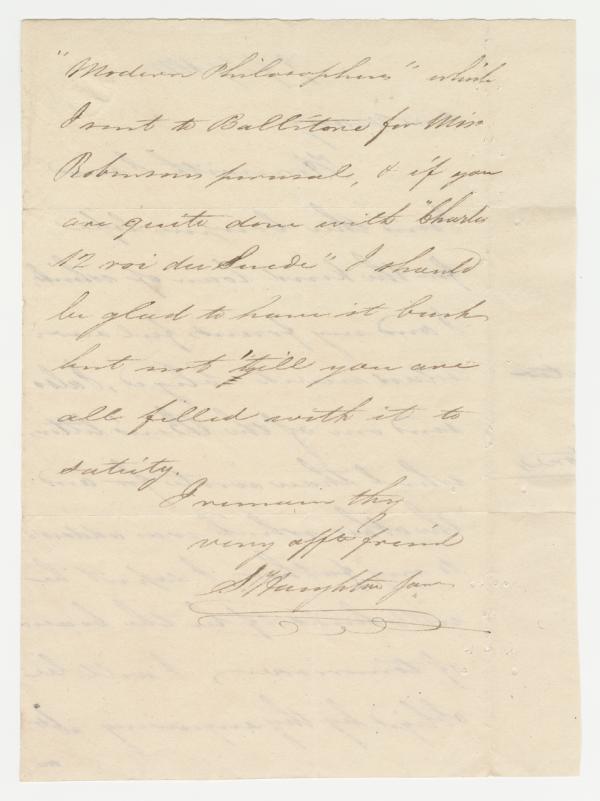 "Modern Philosophers" which
I sent to Ballitore for Miss
Robinsons perusal, & if you
are quite done with "Charles
12 roi du Suede" I should
be glad to have it back
but not 'till you are
all filled with it to
satiety.
I remain thy
very affte friend
S Haughton Junr